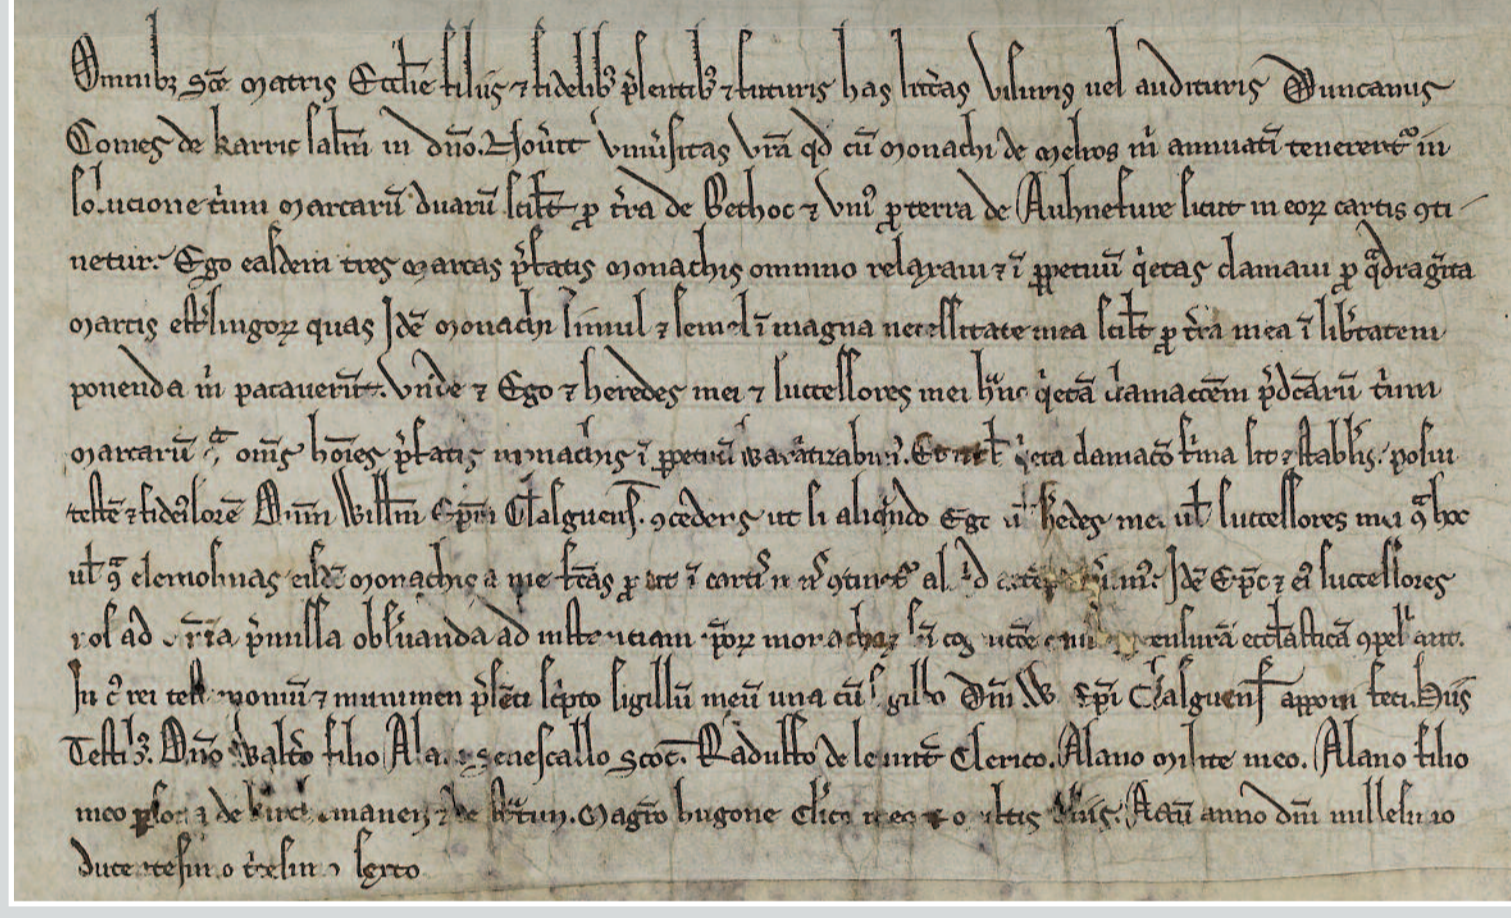 Omnib; Sc̄e Matris Ecc̄lie filiis ⁊ fidelib; p̄sentib; ⁊ futuris has litt̄as visuris uel audituris Duncanus
Comes de karric sal̄m in dn̄o. Nou̓it vniu̓sitas vr̄a qd̓ cū monachi de melros m̓ annuatī tenerent᷑ in
solucione t̓ium marcarū duarū scilt̄ ꝓ t̄ra de Bethoc ⁊ vni᷒ ꝓ terra de Auhnefure sicut in eoꝝ cartis ꝯti
netur. Ego easdem tres marcas p̄fatis monachis omnino relaxaui ⁊ ī ꝑpetuū q̓etas clamaui ꝓ qͣdraḡita
marcis est̓lingoꝝ quas Idē monachi simul ⁊ semel ī magna necessitate mea scilt̄ ꝓ t̄ra mea ī lib̓tatem
ponenda m̓ pacauerūt. Vnde ⁊ Ego ⁊ heredes mei ⁊ successores mei hͣnc q̓etā clamac̄oem p̄dc̄arū t̓ium
marcarū ꝯͣ om̄s hōies p̄fatis monachis ī ꝑpetuū waͣrātizabim᷒. Et q̓eta clamac̄o f̓ma sit ⁊ stabil̓. posui
testē ⁊ fideiusorē Dn̄m Will̄m Ep̄m Glasguens̄. ꝯcedens ut si aliqͣndo Ego ul̄ h̓edes mei ul̄ successores mei ꝯͣ hoc
ul̄ ꝯͣ elemosinas eisdē monachis a me fc̄as ꝓut ī cartis ꝯtinet᷑ Idē Ep̄c ⁊ ei᷒ successores
nos ad om̄ia p̄missa obs̓uanda ad instanciam ip̄oꝝ monachoꝝ censurā eccl̄asticā ꝯpellant.
In c᷒ rei testimoniū ⁊ munimen p̄sēti sc̓pto sigillū meū una cū sigillo Dn̄i W Ep̄i Glasguens̄ apponi feci. Hiis
Testib;. Dn̄o Walt̄o filio Alani senescallo Scoc̄. Radulfo de Clerico. Alano milite meo. Alano filio
meo ꝑsona de Magr̄o hugone cl̓ico meo ⁊ multis aliis. Actū anno dn̄i millesimo
ducentesimo t̓cesimo sexto